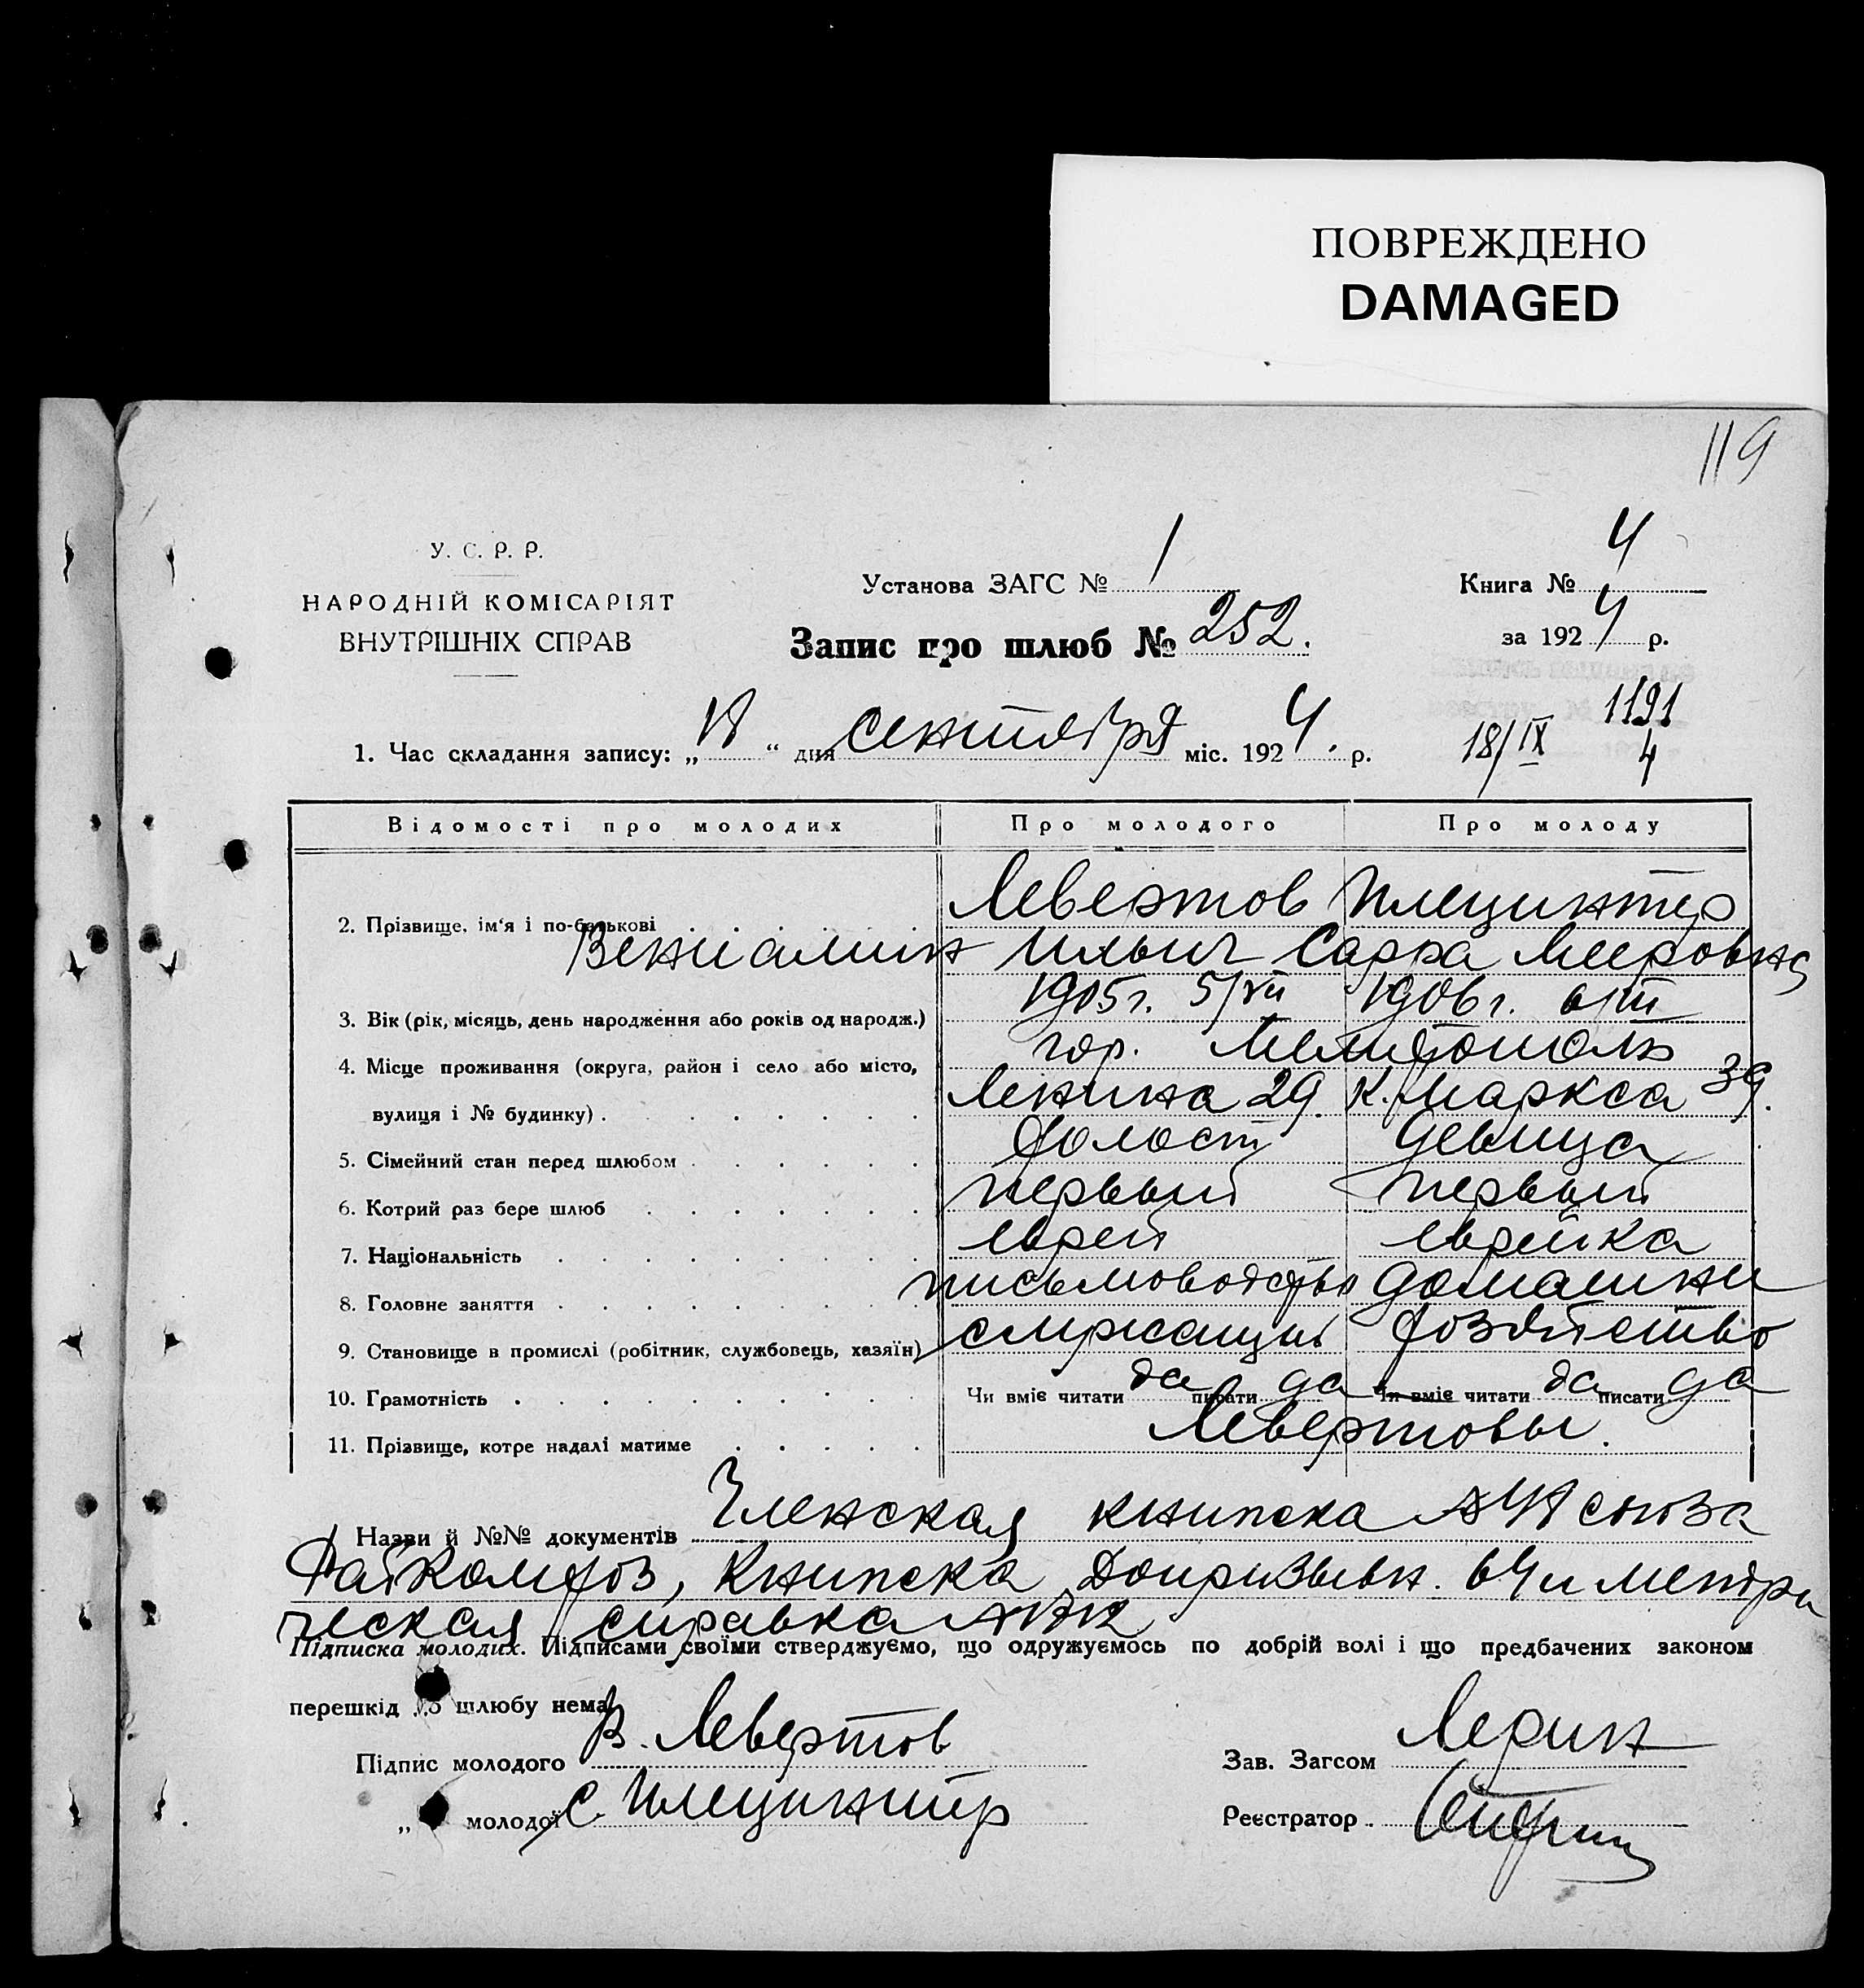 ПОВРЕЖДЕНО
DAMAGED
119
У. С. Р. Р.
НАРОДНІЙ КОМІСАРІЯТ
ВНУТРІШНІХ СПРАВ
Установа ЗАГС № 1
Книга № 4
за 1924 р.
Запис про шлюб № 252.
1. Час складання запису: „18“ дня сентября міс. 1924. р.
18/IX 1191
4
Відомості про молодих Про молодого Про молоду
2. Прізвище, ім'я і по-батькові Левертов
Вениамин Ильич Сарра Мееровна
3. Вік (рік, місяць, день народження або років од народж.) 1905г. 5/VII 1906г. 6/III
4. Місце проживання (округа, район і село або місто, гор. Мелитополь
вулиця і № будинку) Ленина 29. К. Маркса 39.
5. Сімейний стан перед шлюбом холост девица
6. Котрий раз бере шлюб первый первый
7. Національність еврей еврейка
8. Головне заняття письмоводство домашни
9. Становище в промислі (робітник, службовець, хазяїн) служащий хозяйство
10. Грамотність Чи вміє читати да писати да Чи вміє читати да писати да
11. Прізвище, котре надалі матиме Левертовы.
Назви й №№ документів Членская книжка союза
Райкомхоз, книжка Допризывн. 64 и метри
ческая справка
Підписка молодих. Підписами своїми стверджуємо, що одружуємось по добрій волі і що предбачених законом
перешкід до шлюбу нема
Підпис молодого В. Левертов
Зав. Загсом Лерин
„ молодої С.
Реєстратор